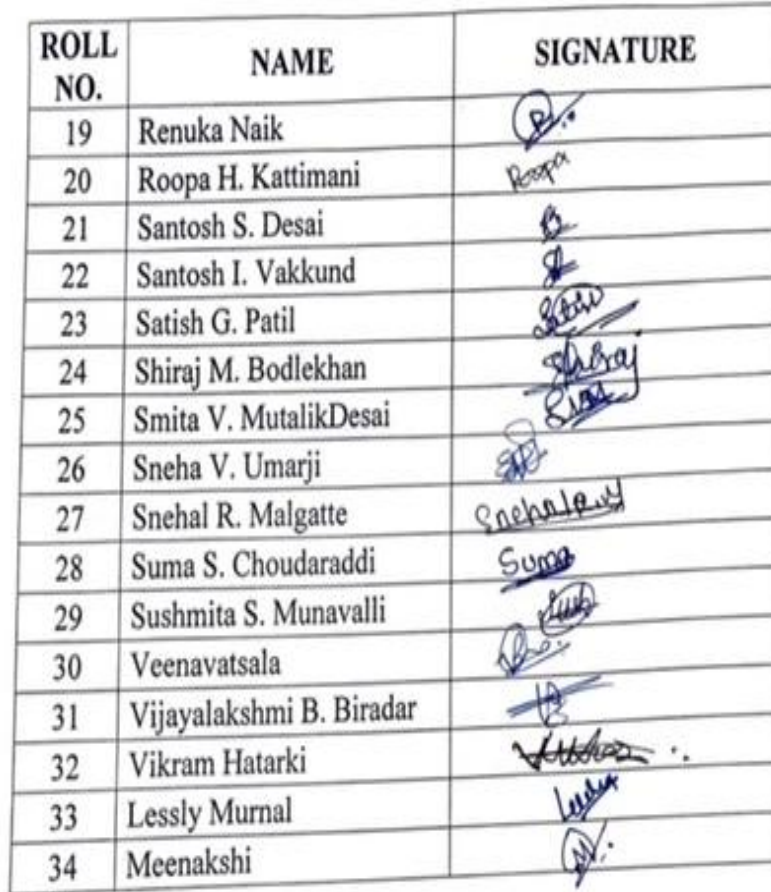 ROLL NO. NAME SIGNATURE
19 Renuka Naik
20 Roopa H. Kattimani Roopa
21 Santosh S. Desai
22 Santosh I. Vakkund
23 Satish G. Patil
24 Shiraj M. Bodlekhan
25 Smita V. MutalikDesai
26 Sneha V. Umarji
27 Snehal R. Malgatte
28 Suma S. Choudaraddi Suma
29 Sushmita S. Munavalli
30 Veenavatsala
31 Vijayalakshmi B. Biradar
32 Vikram Hatarki
33 Lessly Murnal
34 Meenakshi